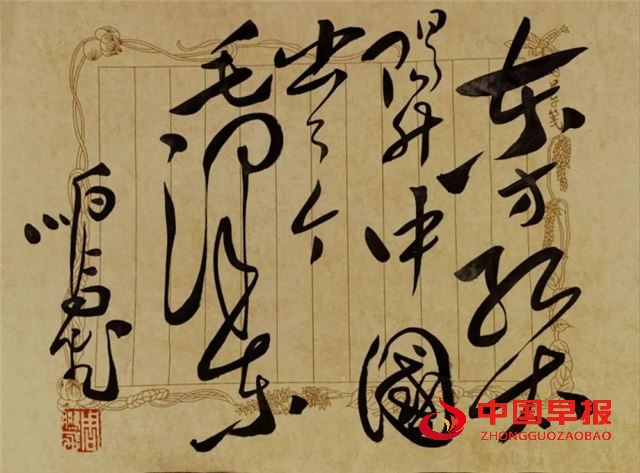 东方红太
陽升中國
出了个
毛泽东
中国早报
ZHONGGUOZAOBAO